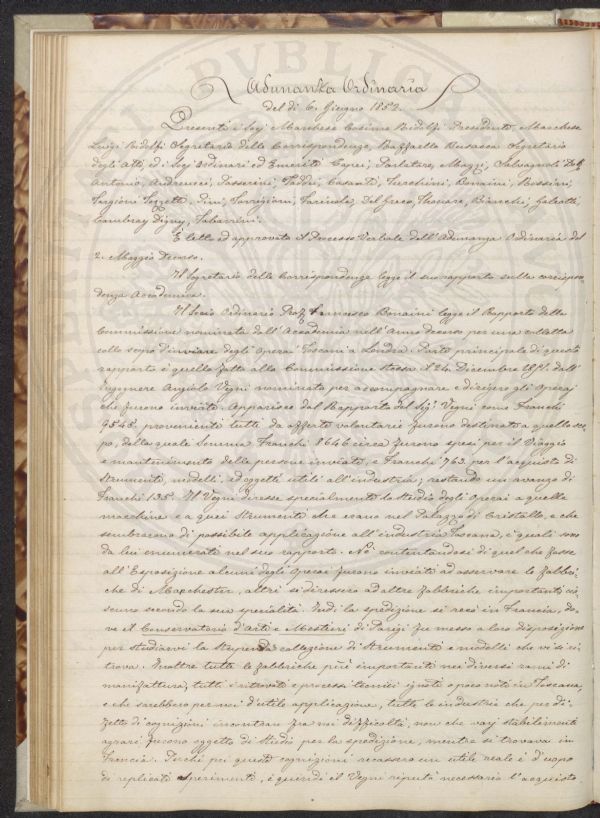 Adunanza Ordinaria
del dì 6 Giugno 1852.
Presenti i Sigj Marchese Cosimo Ridolfi Presidente, Marchese
Luigi Ridolfi Segretario delle Corrispondenze, Raffaello Busacca Segretario
degli Atti, ed i Socj Ordinari ed Emeriti Capei, Parlatore, Mazzi, Salvagnoli Dott.
Antonio, Andreucci, Passerini, Taddei, Casanti, Turchini, Bonaini,
Targioni Tozzetti, Pini, Torrigiani, Farinola, Del Greco, Thouar, Bianchi, Galeotti,
Cambray Digny, Tabarrini.
È letto ed approvato il Processo Verbale dell'Adunanza Ordinaria del
2. Maggio Decorso.
Il Segretario delle Corrispondenze legge il suo rapporto sulla corrispon-
denza Accademica.
Il Socio Ordinario Prof. Francesco Bonaini legge il Rapporto della
Commissione nominata dall'Accademia nell'Anno decorso per una colletta
collo scopo d'inviare degli Operai Toscani a Londra. Parte principale di questo
rapporto è quello fatto alla Commissione stessa il 24. Dicembre 1851. dall'
Ingegnere Angiolo Vegni nominato per accompagnare e dirigere gli Operaj
che furono inviati. Apparisce dal Rapporto del Sigr. Vegni come Franchi
9545. provenienti tutti da offerte volontarie furono destinati a quello sco-
po, della quale Somma Franchi 8646 circa furono spesi per il Viaggio
e mantenimento delle persone inviate, e Franchi 763. per l'acquisto di
Strumenti, modelli, ed oggetti utili all'industria; restando un avanzo di
Franchi 135. Il Vegni diresse specialmente lo studio degli Operai a quelle
macchine e a quei Strumenti che erano nel Palazzo di Cristallo, e che
sembravano di possibile applicazione all'industria Toscana, i quali sono
da lui enumerati nel suo rapporto. Nè contentandosi di quel che fosse
all'Esposizione alcuni degli Operai furono inviati ad osservare le fabbri-
che di Manchester, altri si diressero ad altre fabbriche importanti cia-
scuno secondo la sua specialità. Indi la spedizione si recò in Francia, do-
ve il Conservatorio d'Arti e Mestieri di Parigi fu messo a loro disposizione
per studiarvi la stupenda collezione di Strumenti e modelli che vi si ri-
trova. Inoltre tutte le fabbriche più importanti nei diversi rami di
manifattura, tutti i ritrovati e processi tecnici ignoti o poco noti in Toscana,
e che sarebbero per noi d'utile applicazione, tutte le industrie che per di-
fetto di cognizioni incontran fra noi difficoltà, non che varj stabilimenti
agrarj furono oggetto di Studio per la spedizione, mentre si trovava in
Francia. Perchè poi queste cognizioni recassero un utile reale è d'uopo
di replicati sperimenti, e quindi il Vegni reputa necessario l'acquisto